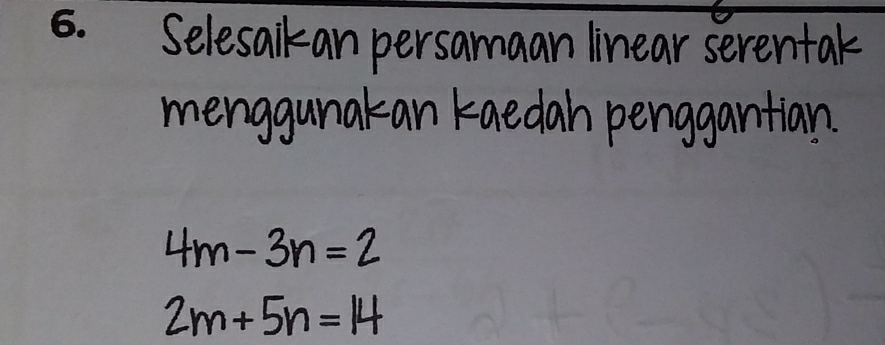 6. Selesaikan persamaan linear serentak
menggunakan kaedah penggantian.
4m - 3n = 2
2m + 5n = 14